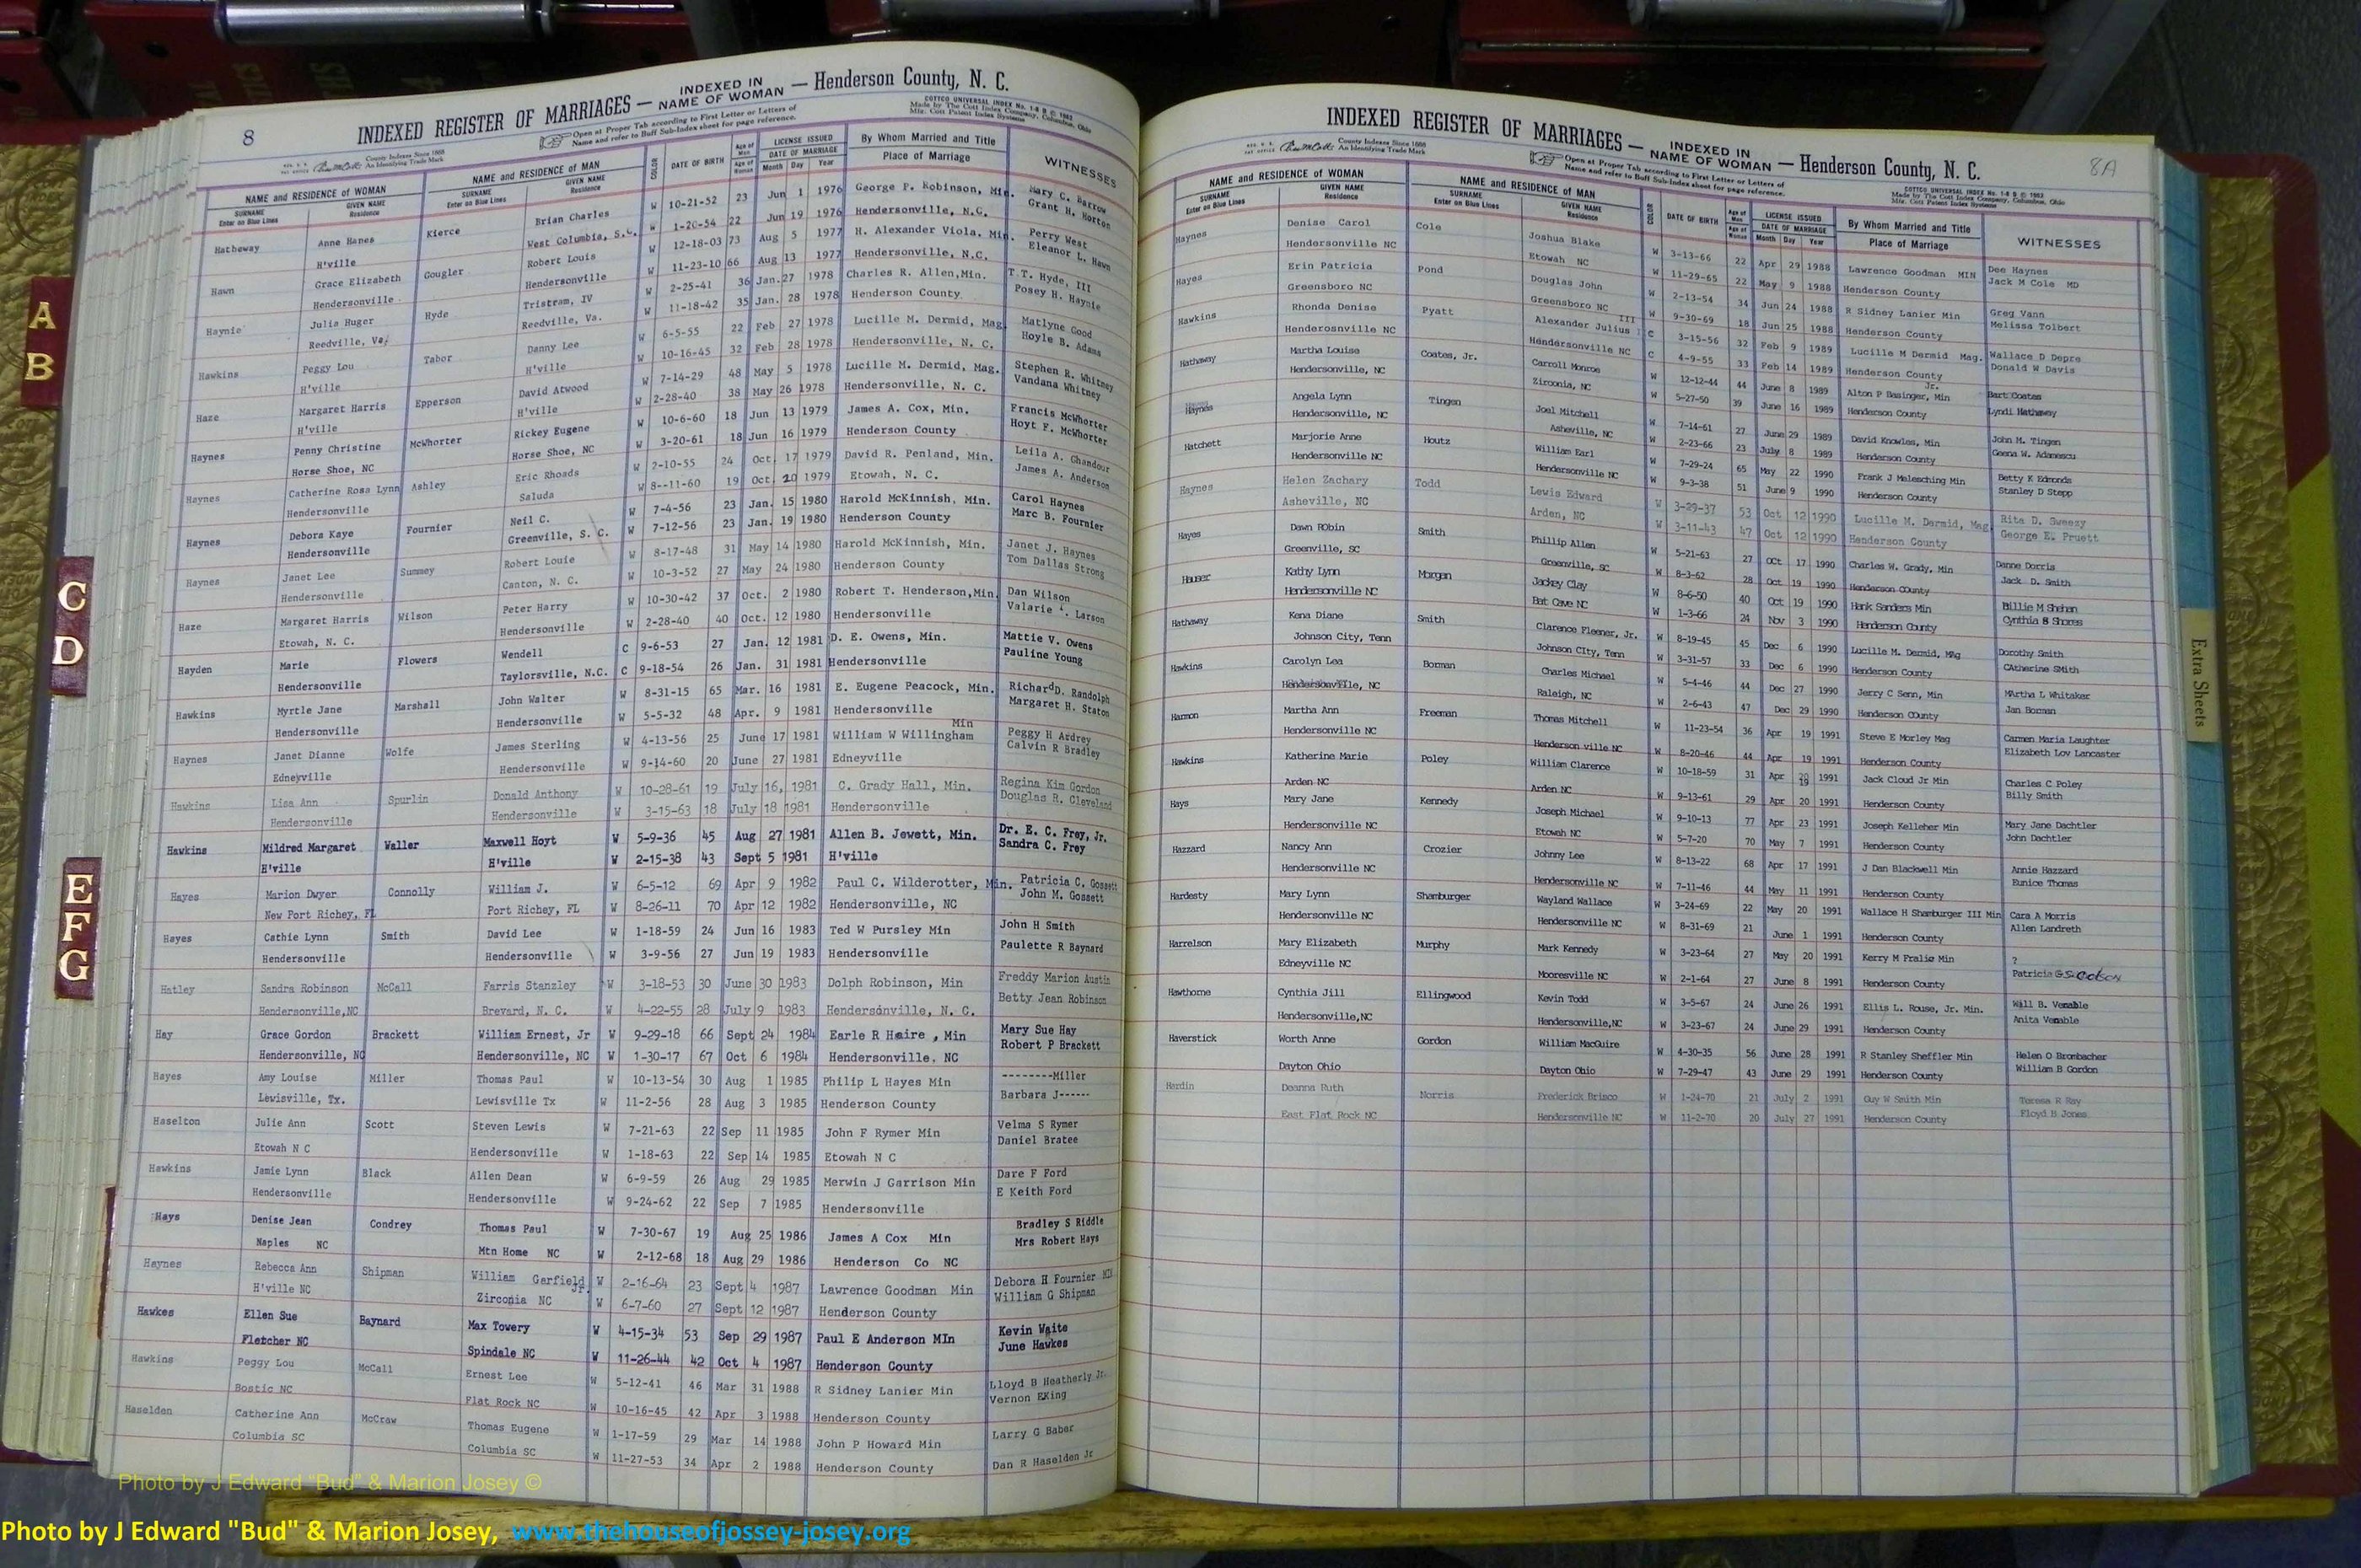 8
INDEXED REGISTER OF MARRIAGES — INDEXED IN NAME OF WOMAN — Henderson County, N. C.
Open at Proper Tab according to First Letter or Letters of
Name and refer to Buff Sub-Index sheet for page reference.
COTTCO UNIVERSAL INDEX No. 1-8 B © 1963
Made by The Cott Index Company, Columbus, Ohio
Mfg. Cott Patent Index Systems
County Indexes Since 1888
An Identifying Trade Mark
NAME and RESIDENCE of WOMAN NAME and RESIDENCE of MAN COLOR DATE OF BIRTH Age of Man Age of Woman LICENSE ISSUED DATE OF MARRIAGE By Whom Married and Title WITNESSES
SURNAME Enter on Blue Lines GIVEN NAME Residence SURNAME Enter on Blue Lines GIVEN NAME Residence Month Day Year Place of Marriage
Hatheway Anne Hanes Kierce Brian Charles W 10-21-52 23 Jun 1 1976 George P. Robinson, Min. Mary C. Barrow
H'ville West Columbia, S.C. W 1-20-54 22 Jun 19 1976 Hendersonville, N.C. Grant H. Horton
Hawn Grace Elizabeth Gougler Robert Louis W 12-18-03 73 Aug 5 1977 H. Alexander Viola, Min. Perry West
Hendersonville Hendersonville W 11-23-10 66 Aug 13 1977 Hendersonville, N.C. Eleanor L. Hawn
Haynie Julia Huger Hyde Tristram, IV W 2-25-41 36 Jan. 27 1978 Charles R. Allen, Min. T.T. Hyde, III
Reedville, Va. Reedville, Va. W 11-18-42 35 Jan. 28 1978 Henderson County Posey H. Haynie
Hawkins Peggy Lou Tabor Danny Lee W 6-5-55 22 Feb 27 1978 Lucille M. Dermid, Mag. Matlyne Good
H'ville H'ville W 10-16-45 32 Feb 28 1978 Hendersonville, N. C. Hoyle B. Adams
Haze Margaret Harris Epperson David Atwood W 7-14-29 48 May 5 1978 Lucille M. Dermid, Mag. Stephen R. Whitney
H'ville H'ville W 2-28-40 38 May 26 1978 Hendersonville, N. C. Vandana Whitney
Haynes Penny Christine McWhorter Rickey Eugene W 10-6-60 18 Jun 13 1979 James A. Cox, Min. Francis McWhorter
Horse Shoe, NC Horse Shoe, NC W 3-20-61 18 Jun 16 1979 Henderson County Hoyt F. McWhorter
Haynes Catherine Rosa Lynn Ashley Eric Rhoads W 2-10-55 24 Oct. 17 1979 David R. Penland, Min. Leila A. Chandour
Hendersonville Saluda W 8--11-60 19 Oct. 20 1979 Etowah, N. C. James A. Anderson
Haynes Debora Kaye Fournier Neil C. W 7-4-56 23 Jan. 15 1980 Harold McKinnish, Min. Carol Haynes
Hendersonville Greenville, S. C. W 7-12-56 23 Jan. 19 1980 Henderson County Marc B. Fournier
Haynes Janet Lee Summey Robert Louie W 8-17-48 31 May 14 1980 Harold McKinnish, Min. Janet J. Haynes
Hendersonville Canton, N. C. W 10-3-52 27 May 24 1980 Henderson County Tom Dallas Strong
Haze Margaret Harris Wilson Peter Harry W 10-30-42 37 Oct. 2 1980 Robert T. Henderson, Min. Dan Wilson
Etowah, N. C. Hendersonville W 2-28-40 40 Oct. 12 1980 Hendersonville Valarie Larson
Hayden Marie Flowers Wendell C 9-6-53 27 Jan. 12 1981 D. E. Owens, Min. Mattie V. Owens
Hendersonville Taylorsville, N.C. C 9-18-54 26 Jan. 31 1981 Hendersonville Pauline Young
Hawkins Myrtle Jane Marshall John Walter W 8-31-15 65 Mar. 16 1981 E. Eugene Peacock, Min. Richard D. Randolph
Hendersonville Hendersonville W 5-5-32 48 Apr. 9 1981 Hendersonville Margaret H. Staton
Haynes Janet Dianne Wolfe James Sterling W 4-13-56 25 June 17 1981 William W Willingham Min Peggy H Ardrey
Edneyville Hendersonville W 9-14-60 20 June 27 1981 Edneyville Calvin R Bradley
Hawkins Lisa Ann Spurlin Donald Anthony W 10-28-61 19 July 16, 1981 C. Grady Hall, Min. Regina Kim Gordon
Hendersonville Hendersonville W 3-15-63 18 July 18 1981 Hendersonville Douglas R. Cleveland
Hawkins Mildred Margaret Waller Maxwell Hoyt W 5-9-36 45 Aug 27 1981 Allen B. Jewett, Min. Dr. E. C. Frey, Jr.
H'ville H'ville W 2-15-38 43 Sept 5 1981 H'ville Sandra C. Frey
Hayes Marion Dwyer Connolly William J. W 6-5-12 69 Apr 9 1982 Paul C. Wilderotter, Min. Patricia C. Gossett
New Port Richey, FL Port Richey, FL W 8-26-11 70 Apr 12 1982 Hendersonville, NC John M. Gossett
Hayes Cathie Lynn Smith David Lee W 1-18-59 24 Jun 16 1983 Ted W Pursley Min John H Smith
Hendersonville Hendersonville W 3-9-56 27 Jun 19 1983 Hendersonville Paulette R Baynard
Hatley Sandra Robinson McCall Farris Stanzley W 3-18-53 30 June 30 1983 Dolph Robinson, Min Freddy Marion Austin
Hendersonville, NC Brevard, N. C. W 4-22-55 28 July 9 1983 Hendersonville, N. C. Betty Jean Robinson
Hay Grace Gordon Brackett William Ernest, Jr W 9-29-18 66 Sept 24 1984 Earle R Haire , Min Mary Sue Hay
Hendersonville, NC Hendersonville, NC W 1-30-17 67 Oct 6 1984 Hendersonville, NC Robert P Brackett
Hayes Amy Louise Miller Thomas Paul W 10-13-54 30 Aug 1 1985 Philip L Hayes Min --------Miller
Lewisville, Tx. Lewisville Tx W 11-2-56 28 Aug 3 1985 Henderson County Barbara J------
Haselton Julie Ann Scott Steven Lewis W 7-21-63 22 Sep 11 1985 John F Rymer Min Velma S Rymer
Etowah N C Hendersonville W 1-18-63 22 Sep 14 1985 Etowah N C Daniel Bratee
Hawkins Jamie Lynn Black Allen Dean W 6-9-59 26 Aug 29 1985 Merwin J Garrison Min Dare F Ford
Hendersonville Hendersonville W 9-24-62 22 Sep 7 1985 Hendersonville E Keith Ford
Hays Denise Jean Condrey Thomas Paul W 7-30-67 19 Aug 25 1986 James A Cox Min Bradley S Riddle
Naples NC Mtn Home NC W 2-12-68 18 Aug 29 1986 Henderson Co NC Mrs Robert Hays
Haynes Rebecca Ann Shipman William Garfield Jr. W 2-16-64 23 Sept 4 1987 Lawrence Goodman Min Debora H Fournier MIN
H'ville NC Zirconia NC W 6-7-60 27 Sept 12 1987 Henderson County William G Shipman
Hawkes Ellen Sue Baynard Max Towery W 4-15-34 53 Sep 29 1987 Paul E Anderson MIn Kevin Waite
Fletcher NC Spindale NC W 11-26-44 42 Oct 4 1987 Henderson County June Hawkes
Hawkins Peggy Lou McCall Ernest Lee W 5-12-41 46 Mar 31 1988 R Sidney Lanier Min Lloyd B Heatherly Jr.
Bostic NC Flat Rock NC W 10-16-45 42 Apr 3 1988 Henderson County Vernon EKing
Haselden Catherine Ann McCraw Thomas Eugene W 1-17-59 29 Mar 14 1988 John P Howard Min Larry G Baber
Columbia SC Columbia SC W 11-27-53 34 Apr 2 1988 Henderson County Dan R Haselden Jr
8A
INDEXED REGISTER OF MARRIAGES — INDEXED IN NAME OF WOMAN — Henderson County, N. C.
County Indexes Since 1888
An Identifying Trade Mark
Open at Proper Tab according to First Letter or Letters of
Name and refer to Buff Sub-Index sheet for page reference.
COTTCO UNIVERSAL INDEX No. 1-8 B © 1963
Made by The Cott Index Company, Columbus, Ohio
Mfg. Cott Patent Index Systems
NAME and RESIDENCE of WOMAN NAME and RESIDENCE of MAN COLOR DATE OF BIRTH Age of Man Age of Woman LICENSE ISSUED DATE OF MARRIAGE By Whom Married and Title WITNESSES
SURNAME Enter on Blue Lines GIVEN NAME Residence SURNAME Enter on Blue Lines GIVEN NAME Residence Month Day Year Place of Marriage
Haynes Denise Carol Cole Joshua Blake W 3-13-66 22 Apr 29 1988 Lawrence Goodman MIN Dee Haynes
Hendersonville NC Etowah NC W 11-29-65 22 May 9 1988 Henderson County Jack M Cole MD
Hayes Erin Patricia Pond Douglas John W 2-13-54 34 Jun 24 1988 R Sidney Lanier Min Greg Vann
Greensboro NC Greensboro NC W 9-30-69 18 Jun 25 1988 Henderson County Melissa Tolbert
Hawkins Rhonda Denise Pyatt Alexander Julius III C 3-15-56 32 Feb 9 1989 Lucille M Dermid Mag. Wallace D Depre
Henderosnville NC Hendersonville NC C 4-9-55 33 Feb 14 1989 Henderson County Donald W Davis
Hathaway Martha Louise Coates, Jr. Carroll Monroe W 12-12-44 44 June 8 1989 Alton P Basinger, Min Jr. Bart Coates
Hendersonville, NC Zirconia, NC W 5-27-50 39 June 16 1989 Henderson County Lyndi Hathaway
Haynes Angela Lynn Tingen Joel Mitchell W 7-14-61 27 June 29 1989 David Knowles, Min John M. Tingen
Hendersonville, NC Asheville, NC W 2-23-66 23 July 8 1989 Henderson County Geena W. Adamescu
Hatchett Marjorie Anne Houtz William Earl W 7-29-24 65 May 22 1990 Frank J Malesching Min Betty K Edmonds
Hendersonville NC Hendersonville NC W 9-3-38 51 June 9 1990 Henderson County Stanley D Stepp
Haynes Helen Zachary Todd Lewis Edward W 3-29-37 53 Oct 12 1990 Lucille M. Dermid, Mag Rita D. Sweezy
Asheville, NC Arden, NC W 3-11-43 47 Oct 12 1990 Henderson County George E. Pruett
Hayes Dawn RObin Smith Phillip Allen W 5-21-63 27 Oct 17 1990 Charles W. Grady, Min Danne Dorris
Greenville, SC Greenville, SC W 8-3-62 28 Oct 19 1990 Henderson COunty Jack D. Smith
Hauser Kathy Lynn Morgan Jackey Clay W 8-6-50 40 Oct 19 1990 Hank Sanders Min Billie M Shehan
Hendersonville NC Bat Cave NC W 1-3-66 24 Nov 3 1990 Henderson County Cynthia S Shores
Hathaway Kena Diane Smith Clarence Fleener, Jr. W 8-19-45 45 Dec 6 1990 Lucille M. Dermid, MAg Dorothy Smith
Johnson City, Tenn Johnson CIty, Tenn W 3-31-57 33 Dec 6 1990 Henderson County CAtherine SMith
Hawkins Carolyn Lea Borman Charles Michael W 5-4-46 44 Dec 27 1990 Jerry C Senn, Min MArtha L Whitaker
Hendersonville, NC Raleigh, NC W 2-6-43 47 Dec 29 1990 Henderson COunty Jan Borman
Harmon Martha Ann Freeman Thomas Mitchell W 11-23-54 36 Apr 19 1991 Steve E Morley Mag Carmen Maria Laughter
Hendersonville NC Henderson ville NC W 8-20-46 44 Apr 19 1991 Henderson County Elizabeth Lov Lancaster
Hawkins Katherine Marie Poley William Clarence W 10-18-59 31 Apr 19 1991 Jack Cloud Jr Min Charles C Poley
Arden NC Arden NC W 9-13-61 29 Apr 20 1991 Henderson County Billy Smith
Hays Mary Jane Kennedy Joseph Michael W 9-10-13 77 Apr 23 1991 Joseph Kelleher Min Mary Jane Dachtler
Hendersonville NC Etowah NC W 5-7-20 70 May 7 1991 Henderson County John Dachtler
Hazzard Nancy Ann Crozier Johnny Lee W 8-13-22 68 Apr 17 1991 J Dan Blackwell Min Annie Hazzard
Hendersonville NC Hendersonville NC W 7-11-46 44 May 11 1991 Henderson County Eunice Thomas
Hardesty Mary Lynn Shamburger Wayland Wallace W 3-24-69 22 May 20 1991 Wallace H Shamburger III Min Cara A Morris
Hendersonville NC Hendersonville NC W 8-31-69 21 June 1 1991 Henderson County Allen Landreth
Harrelson Mary Elizabeth Murphy Mark Kennedy W 3-23-64 27 May 20 1991 Kerry M Fralie Min ?
Edneyville NC Mooresville NC W 2-1-64 27 June 8 1991 Henderson County Patricia G
Hawthorne Cynthia Jill Ellingwood Kevin Todd W 3-5-67 24 June 26 1991 Ellis L. Rouse, Jr. Min. Will B. Venable
Hendersonville,NC Hendersonville,NC W 3-23-67 24 June 29 1991 Henderson County Anita Venable
Haverstick Worth Anne Gordon William MacGuire W 4-30-35 56 June 28 1991 R Stanley Sheffler Min Helen O Brombacher
Dayton Ohio Dayton Ohio W 7-29-47 43 June 29 1991 Henderson County William B Gordon
Hardin Deanna Ruth Norris Frederick Brisco W 1-24-70 21 July 2 1991 Guy W Smith Min Teresa R Ray
East Flat Rock NC Hendersonville NC W 11-2-70 20 July 27 1991 Henderson County Floyd B Jones
A
B
C
D
E
F
G
Extra Sheets
Photo by J Edward "Bud" & Marion Josey ©
Photo by J Edward "Bud" & Marion Josey, www.thehouseofjossey-josey.org